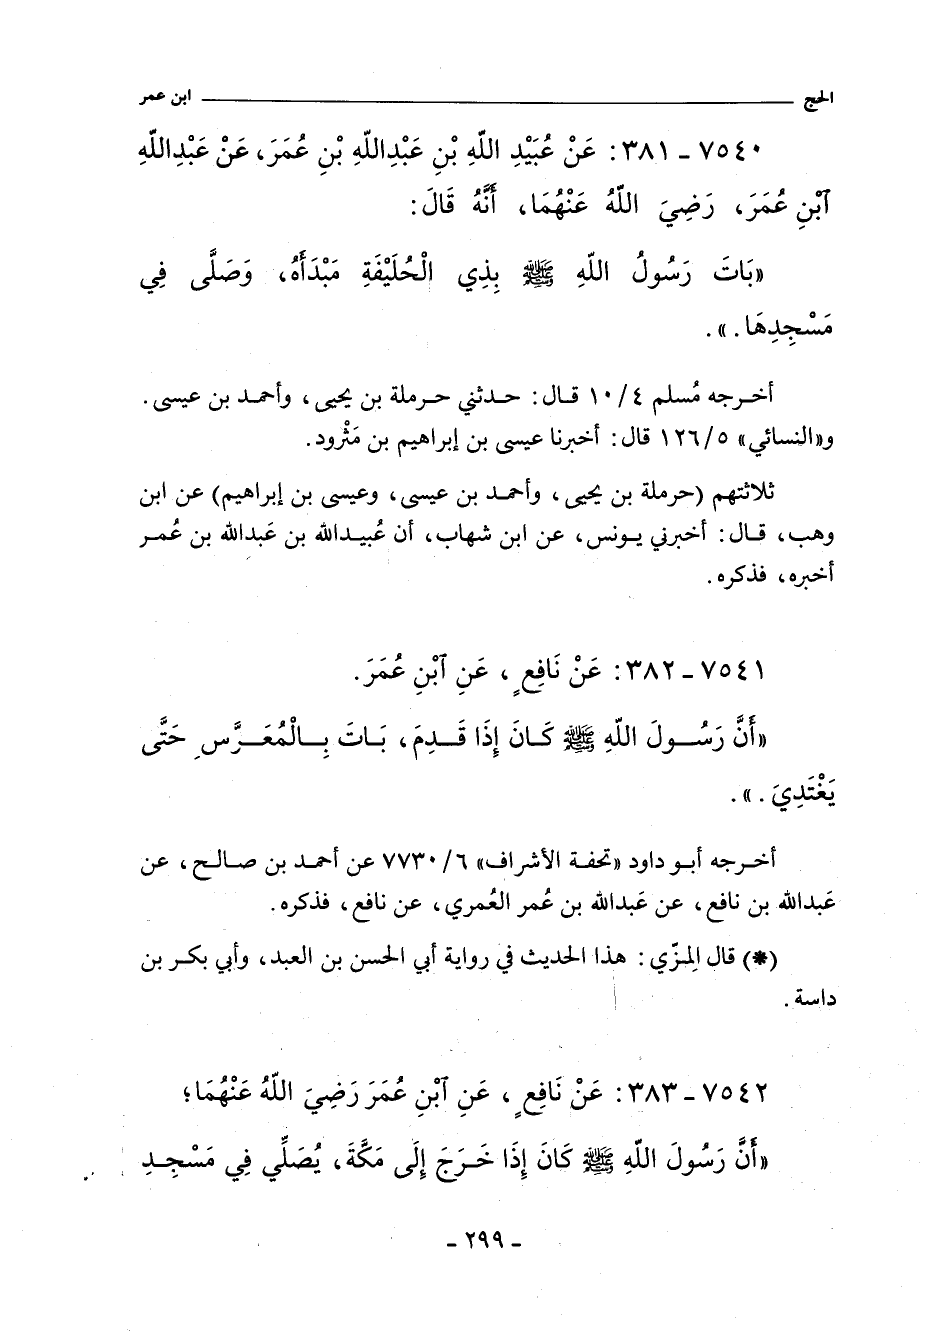 الحج ــــــــــــــــــــــــــــــــــــــــ ابن عمر
٧٥٤٠ - ٣٨١: عَنْ عُبَيْدِ اللّهِ بْنِ عَبْدِاللّهِ بْنِ عُمَرَ، عَنْ عَبْدِاللّهِ
آبْنِ عُمَرَ، رَضِيَ اللّهُ عَنْهُمَا، أَنَّهُ قَالَ:
«بَاتَ رَسُولُ اللّهِ ﷺ بِذِي الْحُلَيْفَةِ مَبْدَأَهُ، وَصَلَّى فِي
مَسْجِدِهَا.».
أخرجه مُسلم ١٠/٤ قال: حدثني حرملة بن يحيى، وأحمد بن عيسى.
و«النسائي» ١٢٦/٥ قال: أخبرنا عيسى بن إبراهيم بن مَثْرود.
ثلاثتهم (حرملة بن يحيى، وأحمد بن عيسى، وعيسى بن إبراهيم) عن ابن
وهب، قال: أخبرني يونس، عن ابن شهاب، أن عُبيدالله بن عَبدالله بن عُمر
أخبره، فذكره.
٧٥٤١ - ٣٨٢: عَنْ نَافِعٍ، عَنِ آبْنِ عُمَرَ.
«أَنَّ رَسُولَ اللّهِ ﷺ كَانَ إِذَا قَدِمَ، بَاتَ بِالْمُعَرَّسِ حَتَّى
يَغْتَدِيَ.».
أخرجه أبو داود «تحفة الأشراف» ٧٧٣٠/٦ عن أحمد بن صالح، عن
عَبدالله بن نافع، عن عَبدالله بن عُمر العُمري، عن نافع، فذكره.
(*) قال المِزّي: هذا الحديث في رواية أبي الحسن بن العبد، وأبي بكر بن
داسة.
٧٥٤٢ - ٣٨٣: عَنْ نَافِعٍ، عَنِ آبْنِ عُمَرَ رَضِيَ اللّهُ عَنْهُمَا؛
«أَنَّ رَسُولَ اللّهِ ﷺ كَانَ إِذَا خَرَجَ إِلَى مَكَّةَ، يُصَلِّي فِي مَسْجِدِ
- ٢٩٩ -